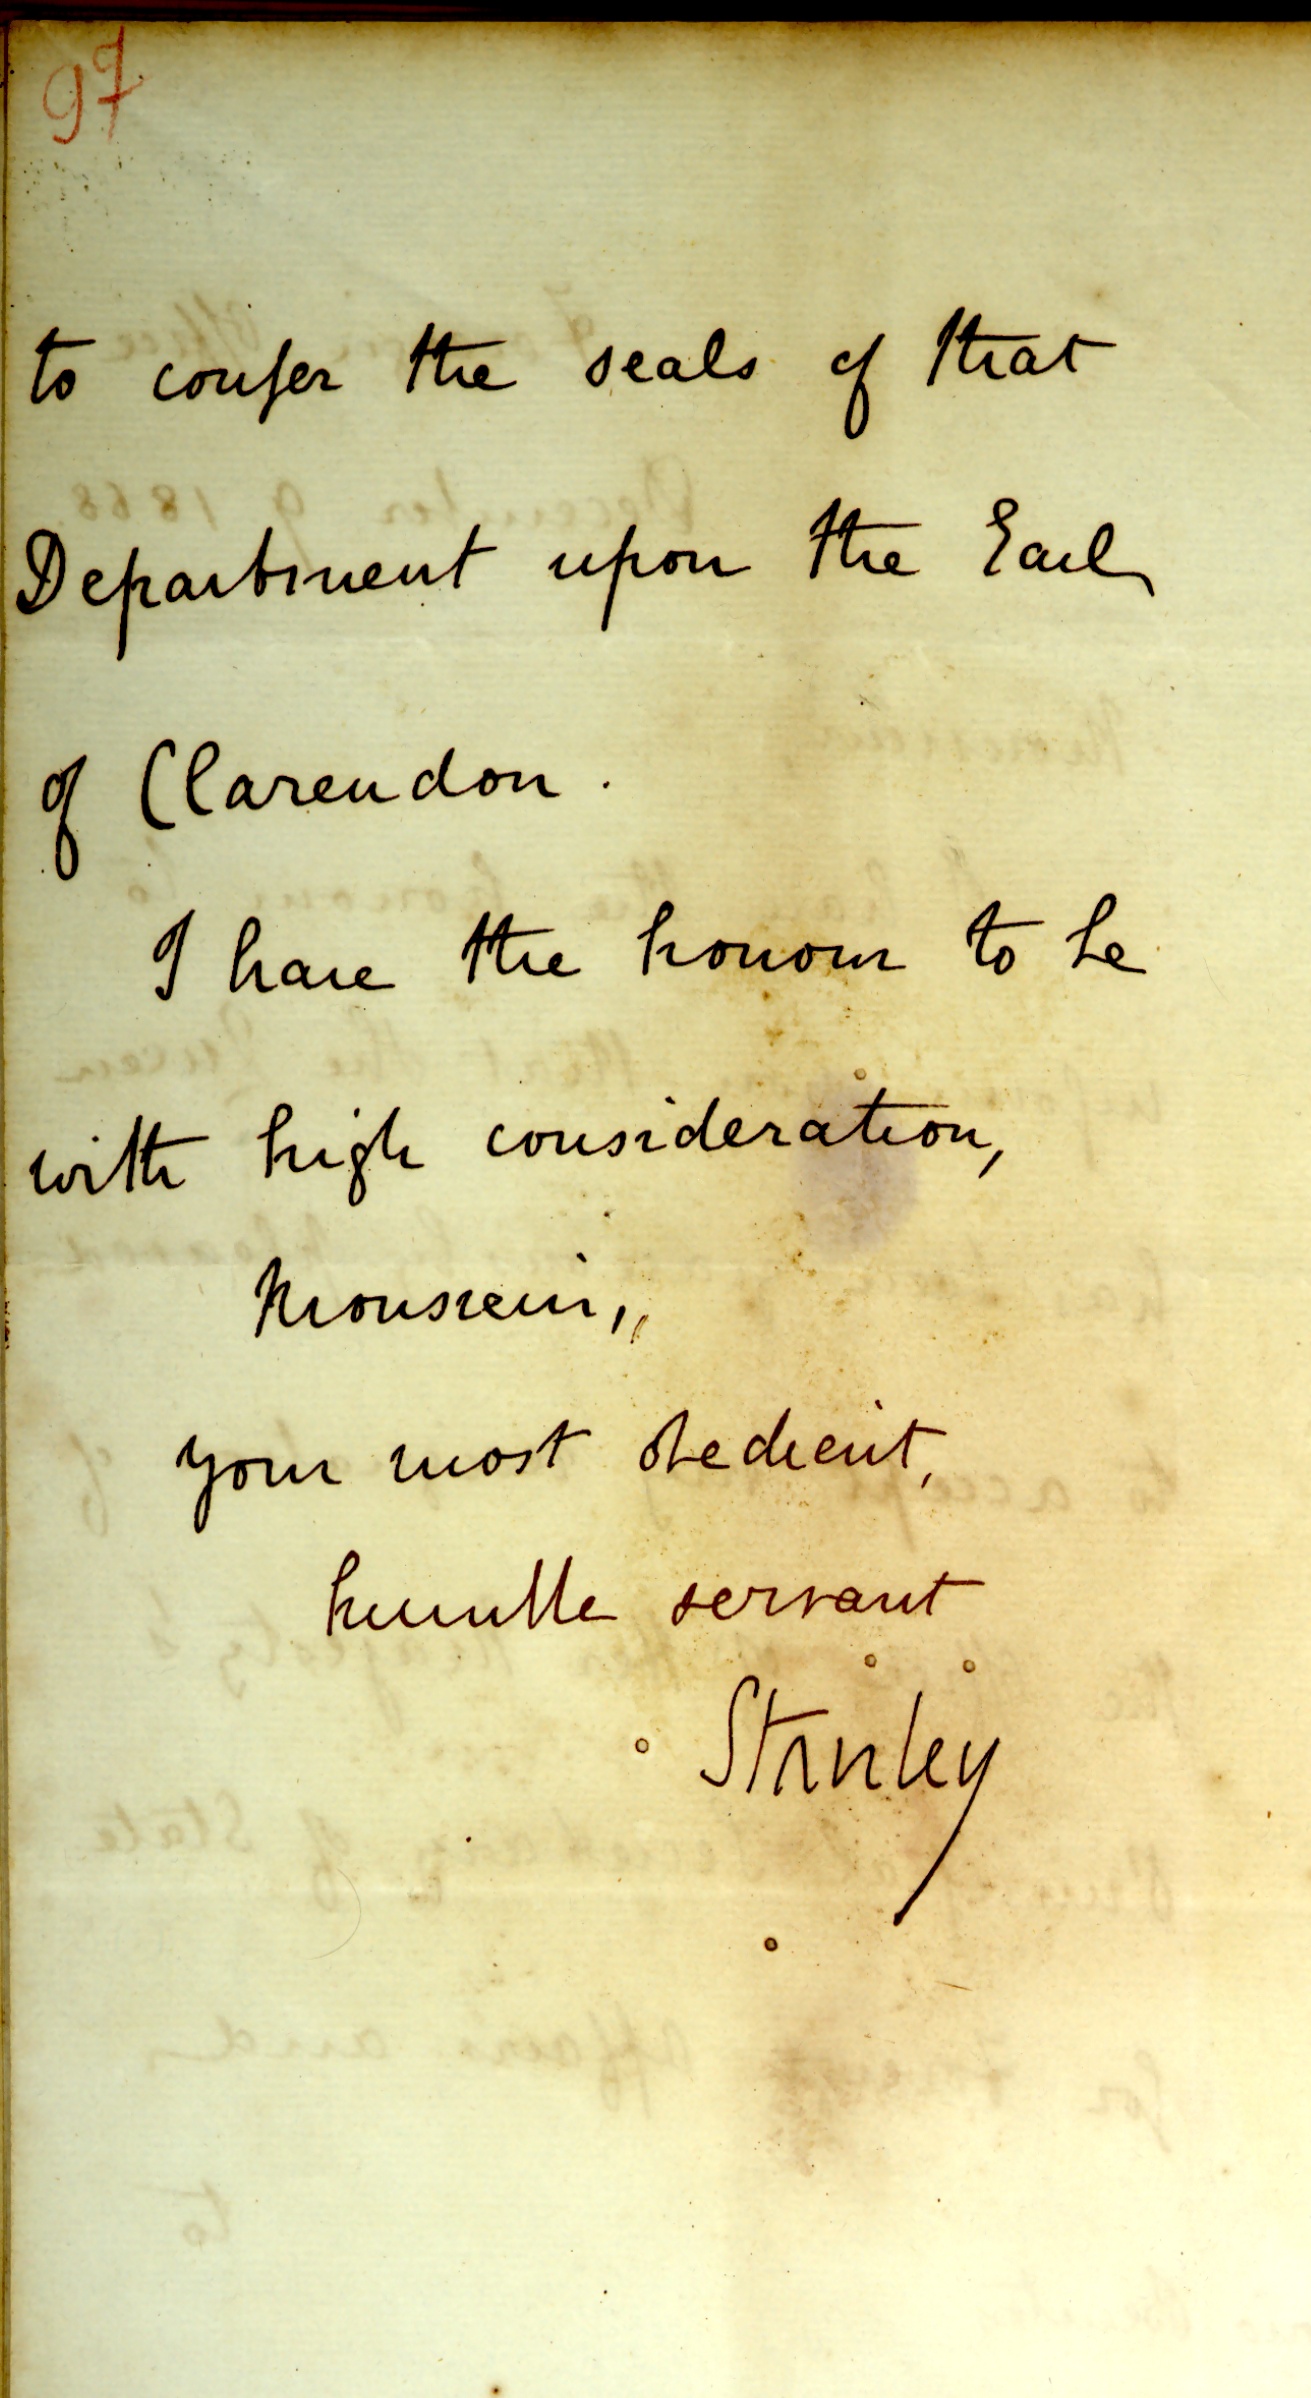 97
to confer the seals of that
Department upon the Earl
of Clarendon.
I have the honour to be
with high consideration,
Monsieur,
your most obedient,
humble servant
Stanley